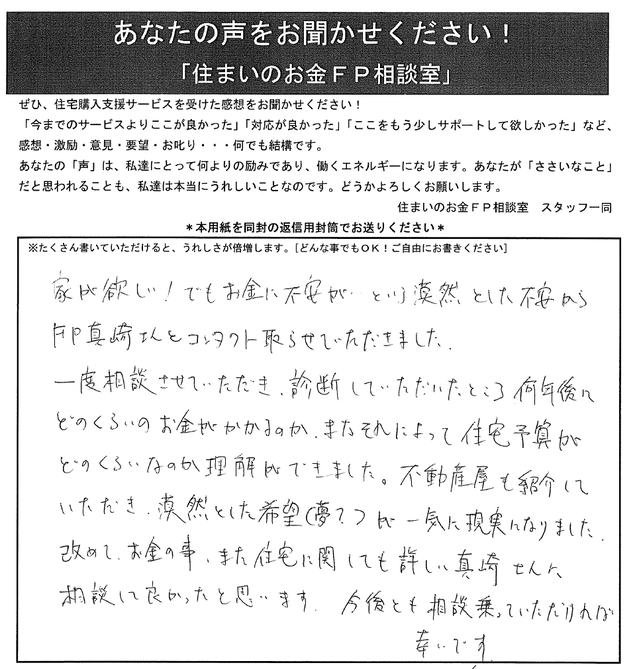 あなたの声をお聞かせください！
「住まいのお金ＦＰ相談室」
ぜひ、住宅購入支援サービスを受けた感想をお聞かせください！
「今までのサービスよりここが良かった」「対応が良かった」「ここをもう少しサポートして欲しかった」など、
感想・激励・意見・要望・お叱り・・・何でも結構です。
あなたの「声」は、私達にとって何よりの励みであり、働くエネルギーになります。あなたが「ささいなこと」
だと思われることも、私達は本当にうれしいことなのです。どうかよろしくお願いします。
住まいのお金ＦＰ相談室　スタッフ一同
＊本用紙を同封の返信用封筒でお送りください＊
※たくさん書いていただけると、うれしさが倍増します。［どんな事でもＯＫ！ご自由にお書きください］
家が欲しい！でもお金に不安が…という漠然とした不安から
FP真崎さんとコンタクト取らせていただきました。
一度相談させていただき、診断していただいたところ何年後に
どのくらいのお金がかかるのか、またそれによって住宅予算が
どのくらいなのか理解ができました。不動産屋も紹介して
いただき、漠然とした希望(夢？)が一気に現実になりました。
改めて、お金の事、また住宅に関しても詳しい真崎さんに
相談して良かったと思います。今後とも相談乗っていただければ
幸いです。